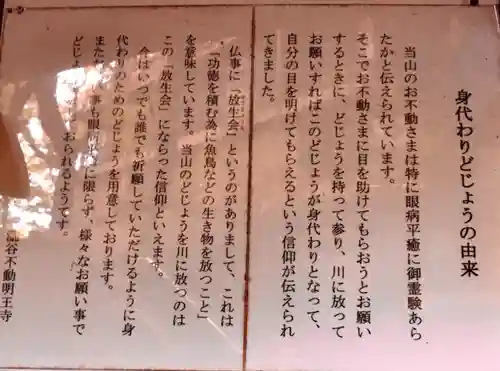 身代わりどじょうの由来
当山のお不動さまは特に眼病平癒に御霊験あら
たかと伝えられています。
そこでお不動さまに目を助けてもらおうとお願い
するときに、どじょうを持って参り、川に放って
お願いすればこのどじょうが身代わりとなって、
自分の目を明けてもらえるという信仰が伝えられ
てきました。
仏事に「放生会」というのがありまして、これは
「功徳を積む為に魚鳥などの生き物を放つこと」
を意味しています。当山のどじょうを川に放つのは
この「放生会」にならった信仰といえます。
今はいつでも誰でも祈願していただけるように身
代わりのためのどじょうを用意しております。
また
事も眼病
に限らず、様々なお願い事で
どじょう
おられるようです。
瀧谷不動明王寺